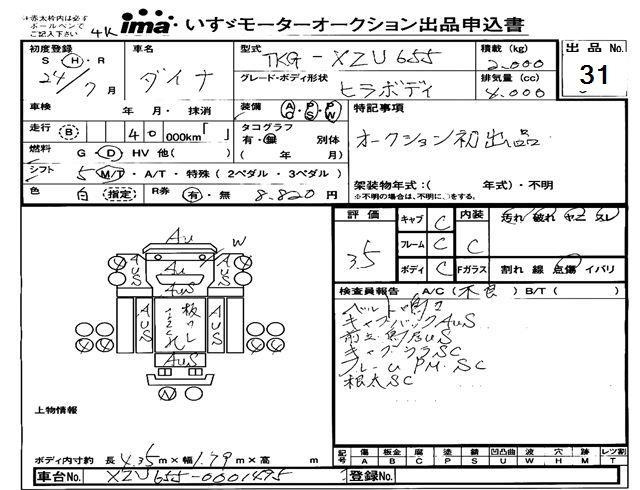 ※赤太枠内は必ず
ボールペンで
ご記入下さい
4K
ima いすゞモーターオークション出品申込書
初度登録
S・H・R
24/7月
車名
ダイナ
型式
TKG-XZU655
グレード・ボディ形状
ヒラボディ
積載 (kg)
2,000
排気量 (cc)
4,000
出品 No.
31
車検 年 月・ 抹消
装備 AC・PS・PW
特記事項
オークション初出品
走行 B 40 000km「 」
タコグラフ
有・無 別体
( 年 月)
燃料 G・D HV 他( )
シフト 5 M/T・A/T・特殊 ( 2ペダル・3ペダル )
色 白 指定
R券 有・無 8,820 円
架装物年式:( 年式)・不明
※不明の場合は、不明に○をする。
評価
3.5
キャブ C
フレーム C
ボディ C
内装 C
汚れ 破れ ヤニ スレ
Fガラス 割れ 線 点傷 イバリ
検査員報告 A/C ( 不良 ) B/T ( )
ベルト鳴リ
キャブバックAuS
キャブウラSC
フレームPM.SC
根太SC
AU
W
AUS
AU
AUS
AUS
AUS
AUS
AUS
上物情報
ボディ内寸約 長 4.35 m×幅 1.79 m×高 m
記号 傷 A 板金 B 腐 C 塗 P 錆 S 凹凸曲 U 波 W 穴 H 跡 M レツ割 T
車台No. XZU655-0001495
登録No.